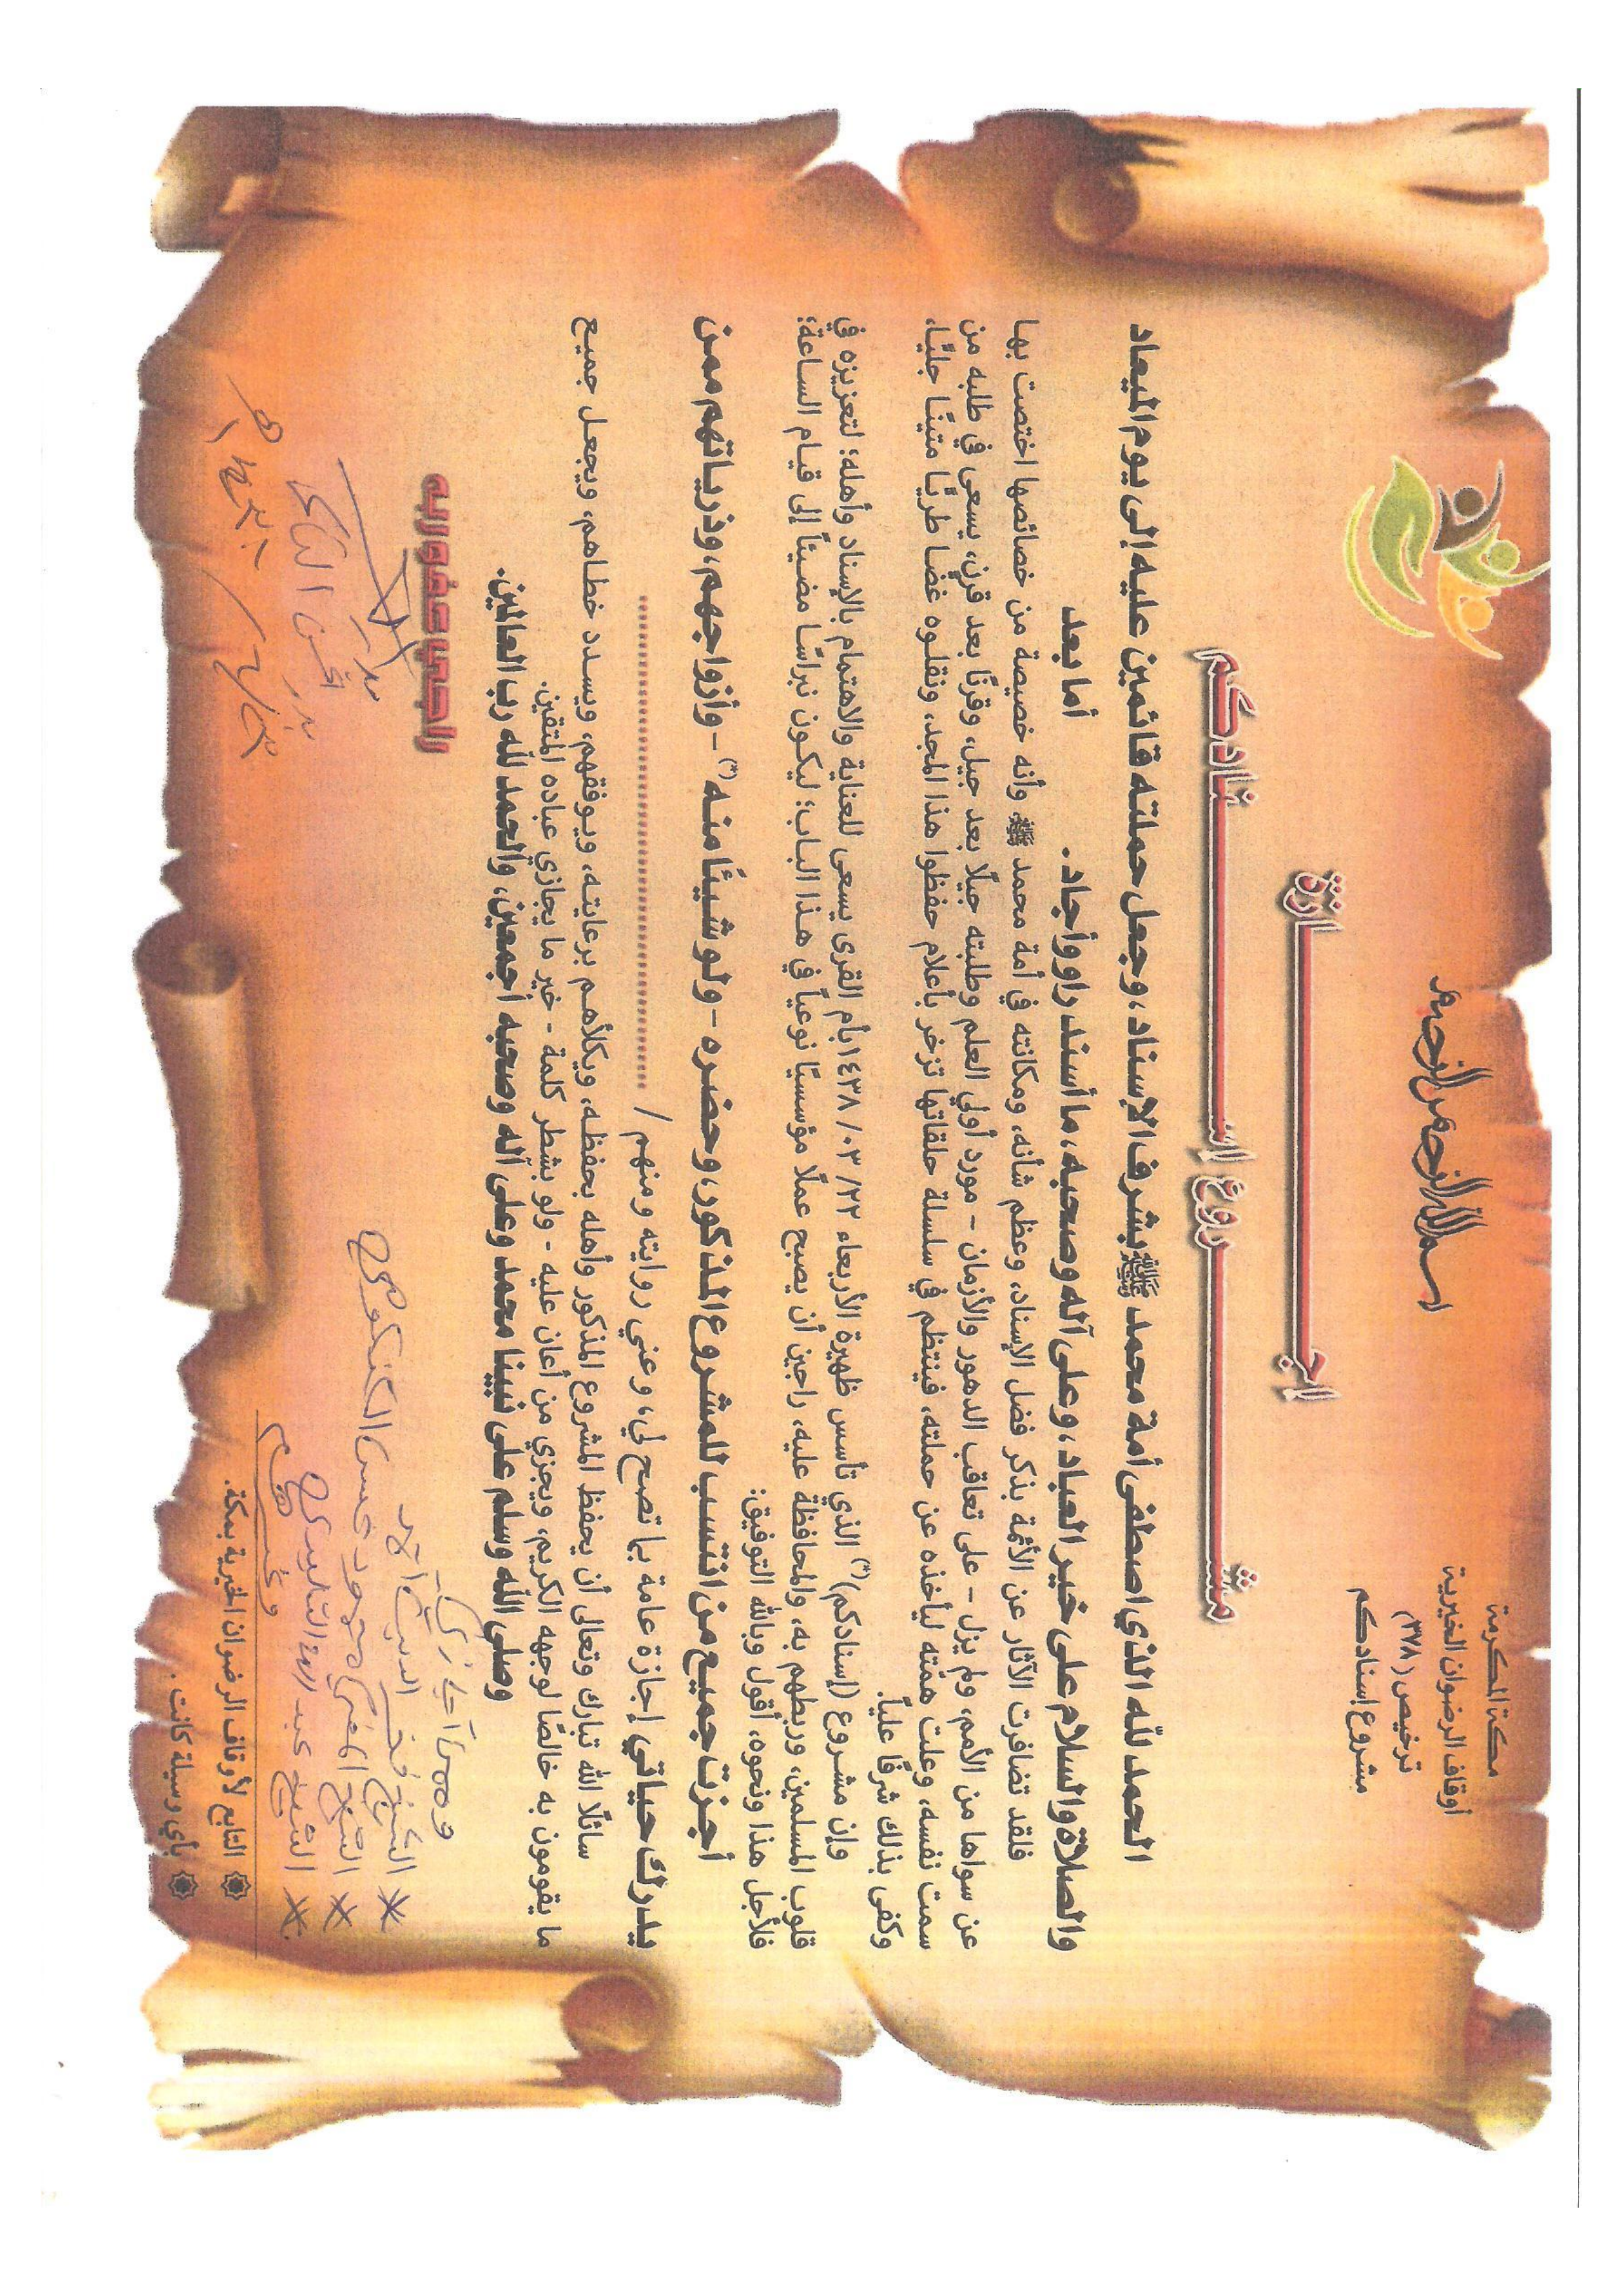 مكة المكرمة
أوقاف الرضوان الخيرية
ترخيص (٣٧٨)
مشروع إسنادكم
بسم الله الرحمن الرحيم
إجـــازة
مشـــروع إسنـــادكم
الحمد لله الذي اصطفى أمة محمد ﷺ بشرف الإسناد، وجعل حملته قائمين عليه إلى يوم الميعاد
والصلاة والسلام على خير العباد، وعلى آله وصحبه، ما أسند راو وأجاد. أما بعد
فلقد تضافرت الآثار عن الأئمة بذكر فضل الإسناد، وعظم شأنه، ومكانته في أمة محمد ﷺ وأنه خصيصة من خصائصها اختصت بها
عن سواها من الأمم، ولم يزل - على تعاقب الدهور والأزمان - مورد أولي العلم وطلبته جيلًا بعد جيل، وقرنًا بعد قرن، يسعى في طلبه من
سمت نفسه، وعلت همّته ليأخذه عن حملته، فينتظم في سلسلة حلقاتها تزخر بأعلام حفظوا هذا المجد، ونقلوه غضا طريًا متينًا جليًا،
وكفى بذلك شرفًا عليًا.
وإن مشروع (إسنادكم)(*) الذي تأسس ظهيرة الأربعاء ٢٢/ ٠٣/ ١٤٣٨ بأم القرى يسعى للعناية والاهتمام بالإسناد وأهله؛ لتعزيزه في
قلوب المسلمين، وربطهم به، والمحافظة عليه، راجين أن يصبح عملًا مؤسسيًا نوعياً في هذا الباب؛ ليكون نبراسًا مضيئاً إلى قيام الساعة؛
فلأجل هذا ونحوه، أقول وبالله التوفيق:
أجزت جميع من انتسب للمشروع المذكور، وحضره - ولو شيئًا منه(*) - وأزواجهم، وذرياتهم ممن
يدرك حياتي إجازة عامة بما تصح لي، وعني روايته ومنهم / ..............................
سائلًا الله تبارك وتعالى أن يحفظ المشروع المذكور وأهله بحفظه، ويكلأهم برعايته، ويوفقهم، ويسدد خطاهم، ويجعل جميع
ما يقومون به خالصًا لوجهه الكريم، ويجزي من أعان عليه - ولو بشطر كلمة - خير ما يجازي عباده المتقين.
وصلى الله وسلم على نبينا محمد وعلى آله وصحبه أجمعين، والحمد لله رب العالمين.
راجي عفو ربه
* الشيخ
* الشيخ
* الشيخ عبد
التابع لأوقاف الرضوان الخيرية بمكة.
بأي وسيلة كانت.